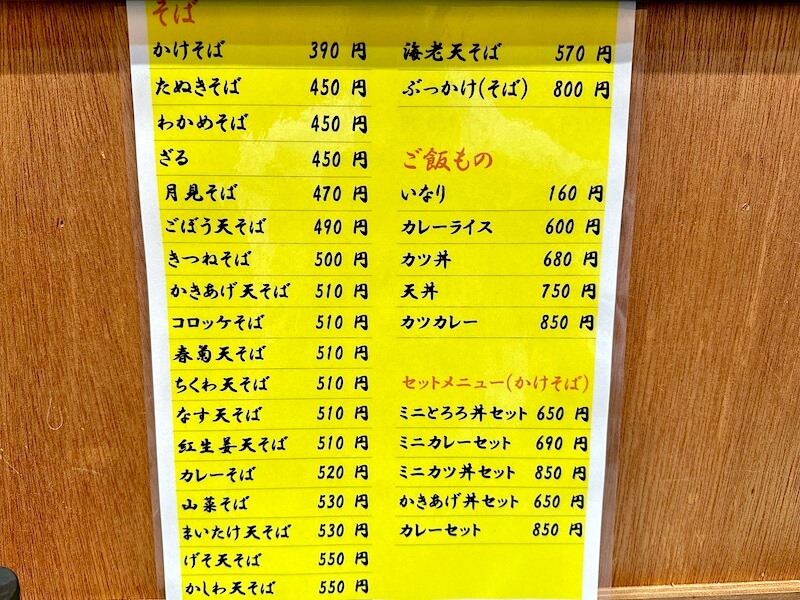 そば
かけそば 390 円
たぬきそば 450 円
わかめそば 450 円
ざる 450 円
月見そば 470 円
ごぼう天そば 490 円
きつねそば 500 円
かきあげ天そば 510 円
コロッケそば 510 円
春菊天そば 510 円
ちくわ天そば 510 円
なす天そば 510 円
紅生姜天そば 510 円
カレーそば 520 円
山菜そば 530 円
まいたけ天そば 530 円
げそ天そば 550 円
かしわ天そば 550 円
海老天そば 570 円
ぶっかけ(そば) 800 円
ご飯もの
いなり 160 円
カレーライス 600 円
カツ丼 680 円
天丼 750 円
カツカレー 850 円
セットメニュー(かけそば)
ミニとろろ丼セット 650 円
ミニカレーセット 690 円
ミニカツ丼セット 850 円
かきあげ丼セット 650 円
カレーセット 850 円